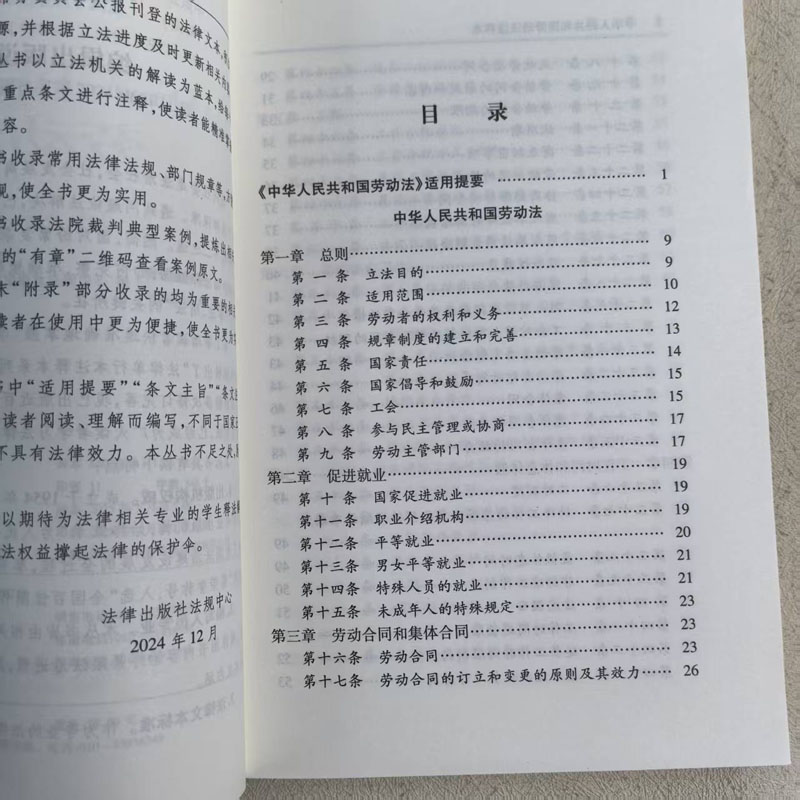 公报刊登的法律文本,
源,并根据立法进度及时更新相关
丛书以立法机关的解读为蓝本,
重点条文进行注释,使读者能精准
容。
书收录常用法律法规、部门规章等,
规,使全书更为实用。
书收录法院裁判典型案例,提炼出
的“有章”二维码查看案例原文。
末“附录”部分收录的均为重要的
读者在使用中更为便捷,使全书更
书中“适用提要”“条文主旨”“条文
读者阅读、理解而编写,不同于国家
不具有法律效力。本丛书不足之处,
以期待为法律相关专业的学生释法
法权益撑起法律的保护伞。
法律出版社法规中心
2024年12月
目 录
《中华人民共和国劳动法》适用提要 …… 1
中华人民共和国劳动法
第一章 总则 …… 9
第一条 立法目的 …… 9
第二条 适用范围 …… 10
第三条 劳动者的权利和义务 …… 12
第四条 规章制度的建立和完善 …… 13
第五条 国家责任 …… 14
第六条 国家倡导和鼓励 …… 15
第七条 工会 …… 15
第八条 参与民主管理或协商 …… 17
第九条 劳动主管部门 …… 17
第二章 促进就业 …… 19
第十条 国家促进就业 …… 19
第十一条 职业介绍机构 …… 19
第十二条 平等就业 …… 20
第十三条 男女平等就业 …… 21
第十四条 特殊人员的就业 …… 21
第十五条 未成年人的特殊规定 …… 23
第三章 劳动合同和集体合同 …… 23
第十六条 劳动合同 …… 23
第十七条 劳动合同的订立和变更的原则及其效力 …… 26